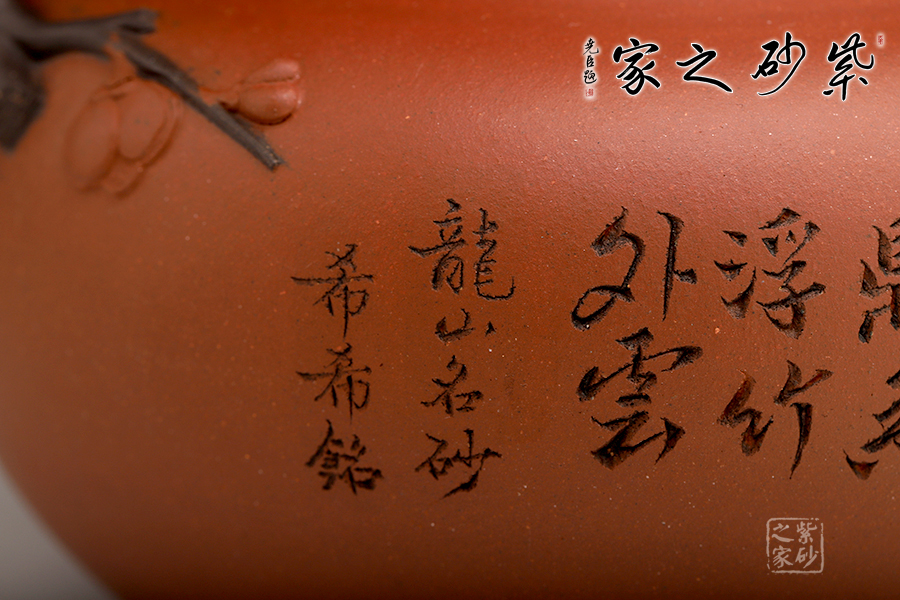 紫砂之家
浮竹
外雲
龍山名砂
希希銘
紫砂
之家